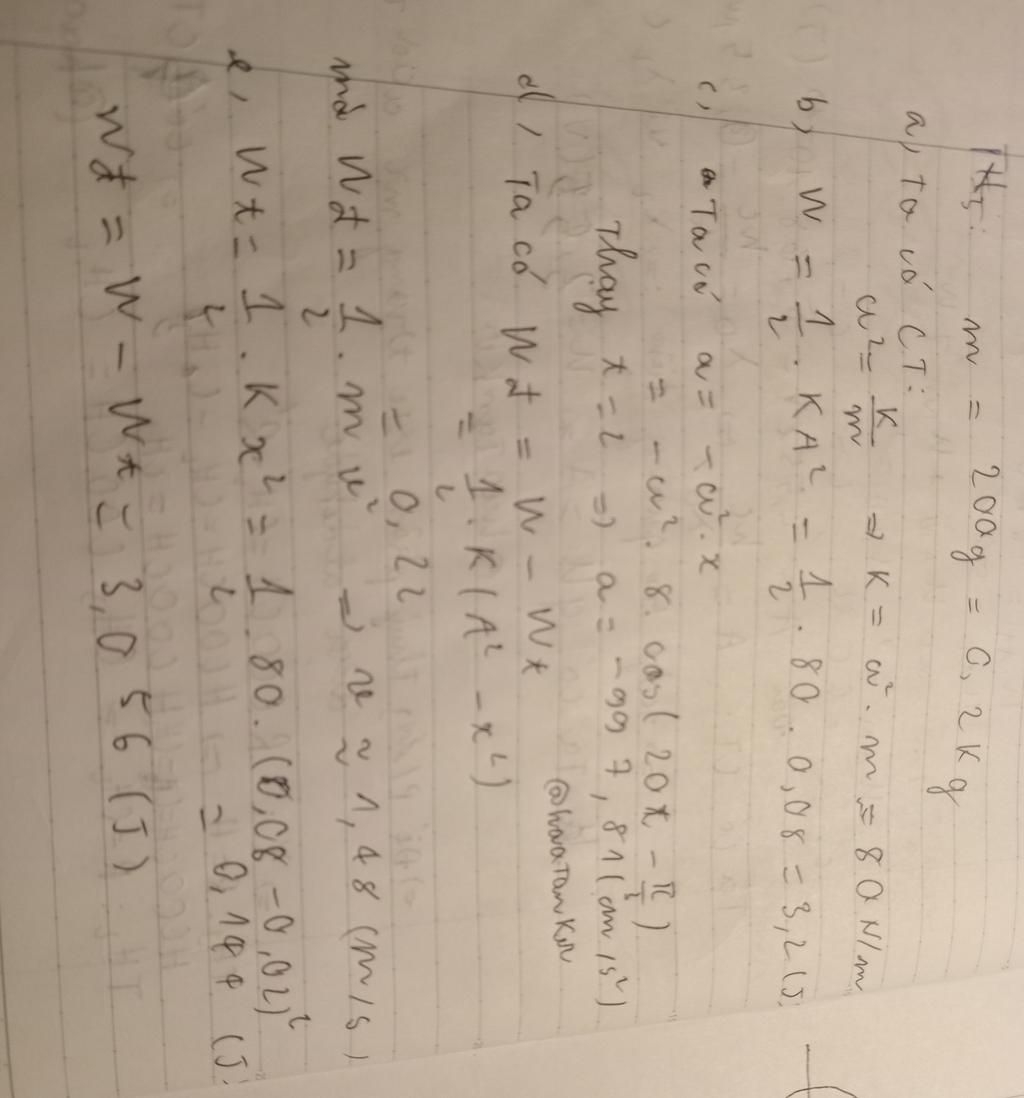 m = 200g = 0,2 kg
a, Ta có CT:
ω² = K/m ⇒ K = ω². m = 80 N/m
b, W = 1/2 . KA² = 1/2 . 80 . 0,08 = 3,2 (J)
c, Ta có a = - ω². x
= - ω². 8. cos(20t - π/3)
Thay t = 2 ⇒ a = -997,81 (cm/s²)
@hoaTamKM
d, Ta có Wđ = W - Wt
= 1/2 . K (A² - x²)
= 0,22
mà Wđ = 1/2 . m v² ⇒ v ≈ 1,48 (m/s)
e, Wt = 1/2 . K x² = 1/2 . 80. (0,08 - 0,02)²
= 0,144 (J)
Wđ = W - Wt = 3,056 (J)